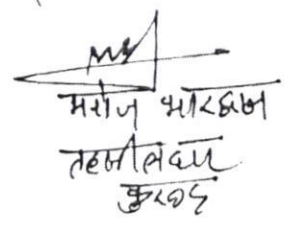 मनोज भारद्वाज
तहसीलदार
कुरूद